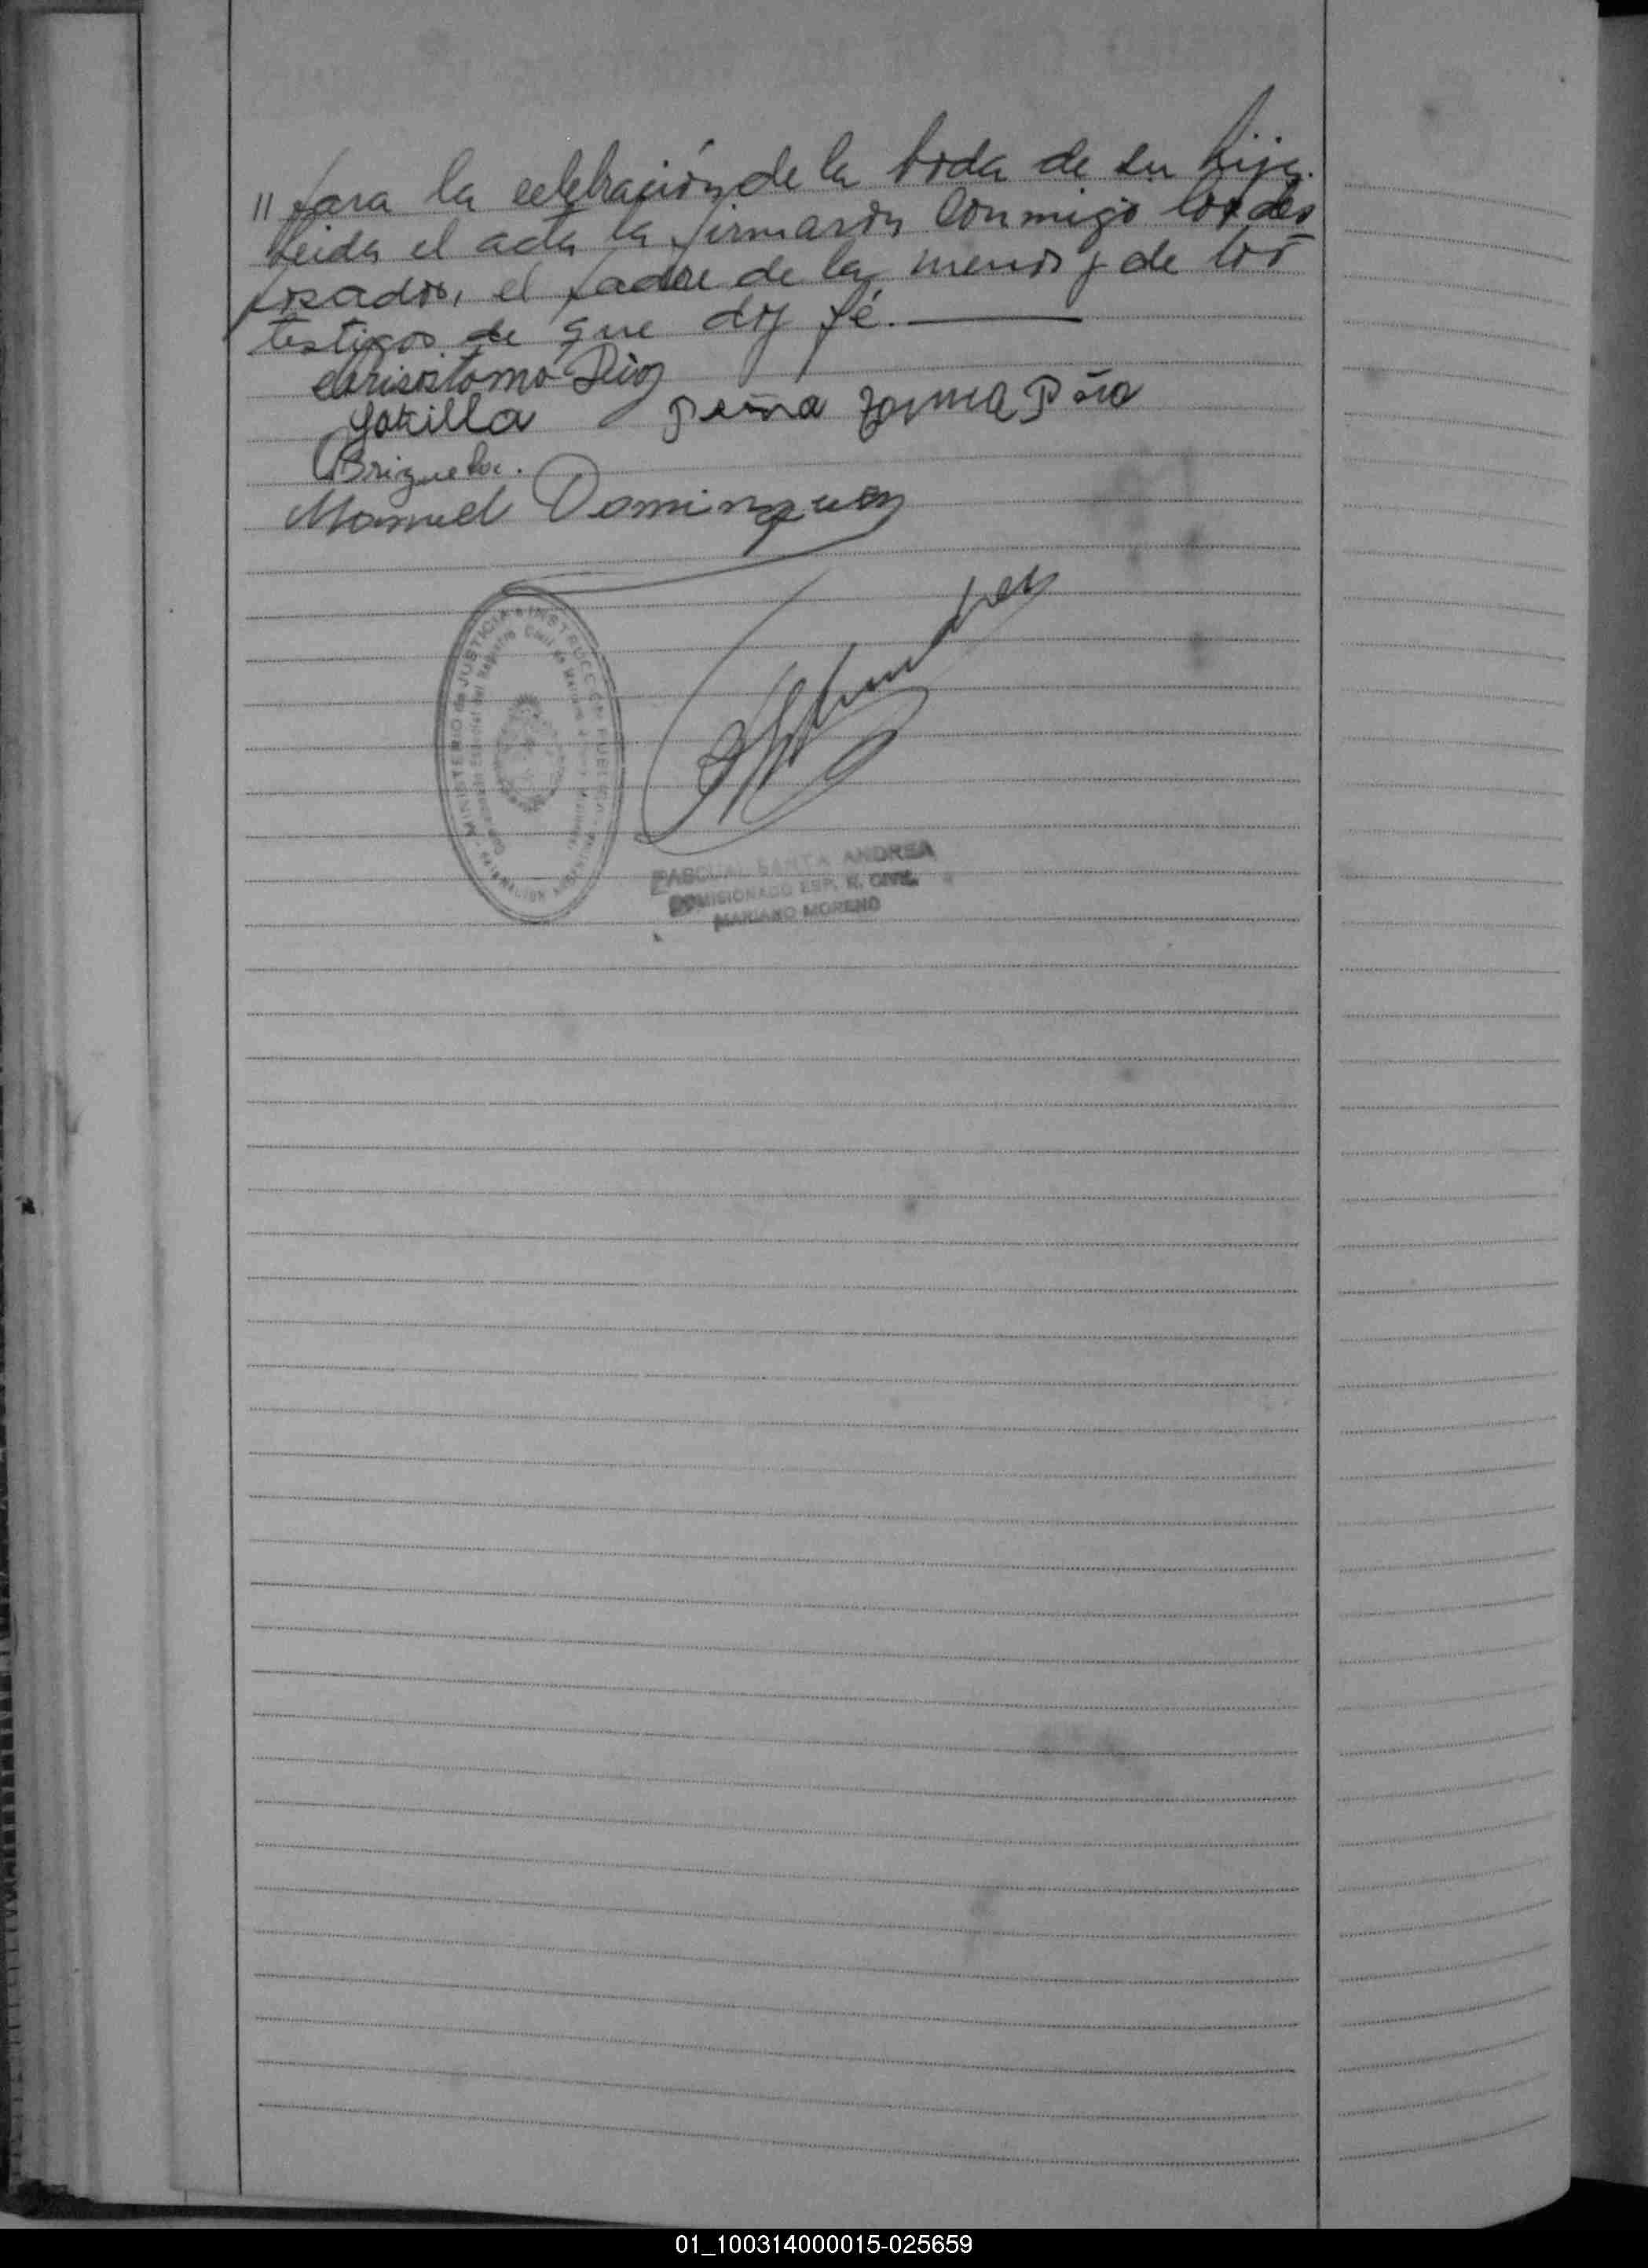 " para la celebración de la boda de su hija.
Leida el acta la firmaron conmigo los des
posados, el padre de la menor y de los
testigos de que doy fé.
Crisostomo Dios
peña
Brizuela.
Manuel Dominguez
MINISTERIO de JUSTICIA e INSTRUCCION PUBLICA
PASCUAL SANTA ANDREA
COMISIONADO ESP. R. CIVIL
MARIANO MORENO
01_100314000015-025659